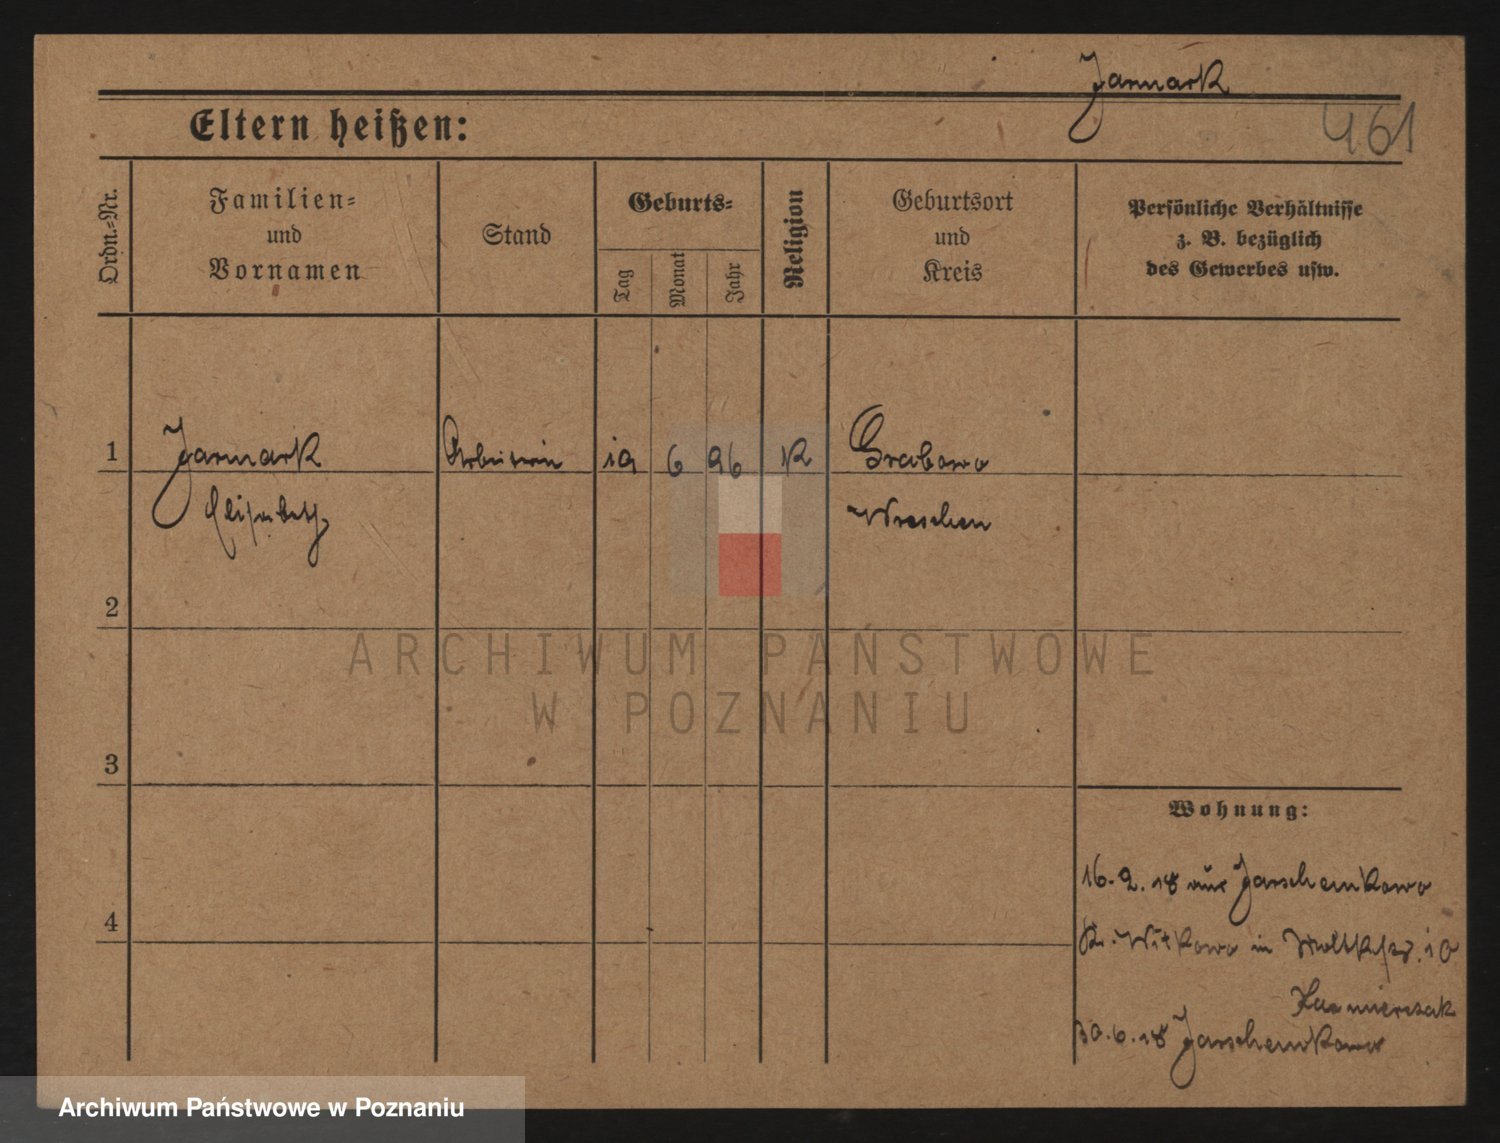 Jarmark
461
Eltern heißen:
Ordn.-Nr.
Familien-
und
Vornamen
Stand
Geburts-
Tag
Monat
Jahr
Religion
Geburtsort
und
Kreis
Persönliche Verhältnisse
z. B. bezüglich
des Gewerbes usw.
1 Jarmark Arbeiterin 19 6 96 K Grabowo
Elisabeth Wreschen
2
ARCHIWUM PAŃSTWOWE
W POZNANIU
3
Wohnung:
16.2.18 aus Jarschemkowo
4
Kr. Witkowo in Moltkestr. 10
Kazmierczak
30.6.18 Jarschemkowo
Archiwum Państwowe w Poznaniu